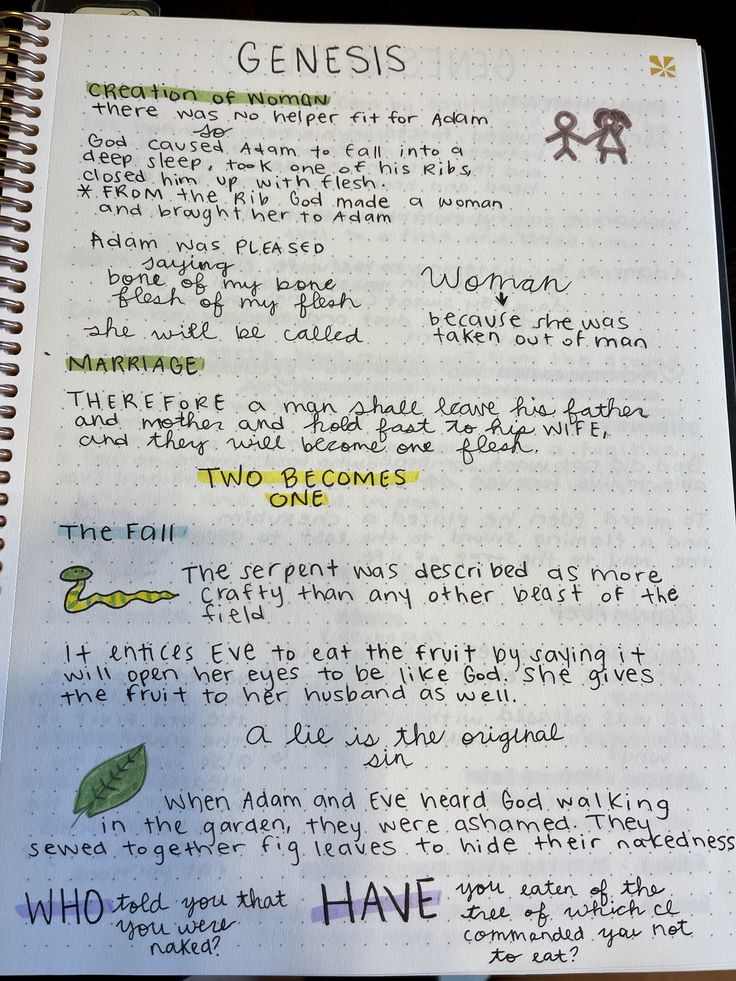 GENESIS
Creation of Woman
there was no helper fit for Adam
so
God caused Adam to fall into a
deep sleep, took one of his Ribs,
closed him up with flesh.
* FROM the Rib God made a woman
and brought her to Adam
Adam was PLEASED
saying
bone of my bone
flesh of my flesh
she will be called
Woman
↓
because she was
taken out of man
MARRIAGE
THEREFORE a man shall leave his father
and mother and hold fast to his WIFE,
and they will become one flesh.
TWO BECOMES
ONE
The Fall
The serpent was described as more
crafty than any other beast of the
field
It entices Eve to eat the fruit by saying it
will open her eyes to be like God. She gives
the fruit to her husband as well.
a lie is the original
sin
when Adam and Eve heard God walking
in the garden, they were ashamed. They
sewed together fig leaves to hide their nakedness
WHO told you that
you were
naked?
HAVE you eaten of the
tree of which I
commanded you not
to eat?